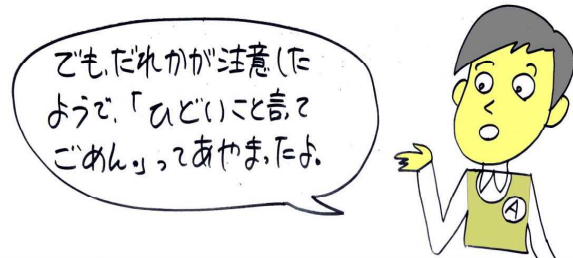 でも、だれかが注意した
ようで、「ひどいこと言って
ごめん。」ってあやまったよ。
A